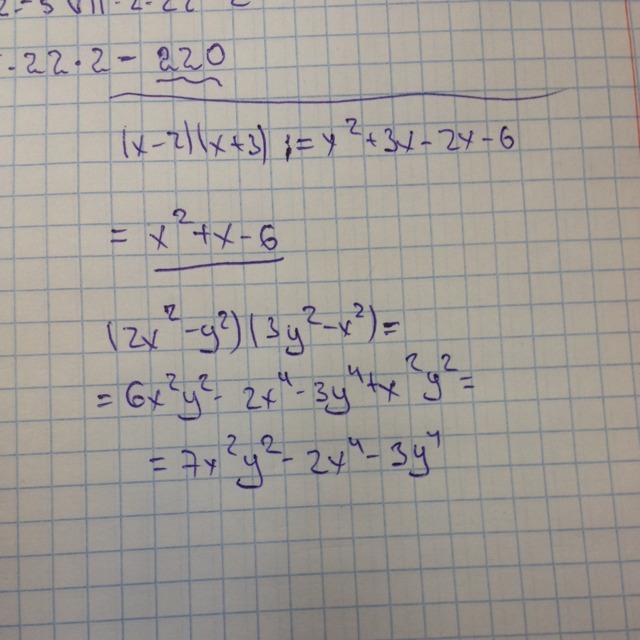 · 22 · 2 - 220
(x-2)(x+3) = x²+3x-2x-6
= x²+x-6
(2x²-y²)(3y²-x²)=
= 6x²y²- 2x⁴-3y⁴+x²y²=
= 7x²y²-2x⁴-3y⁴